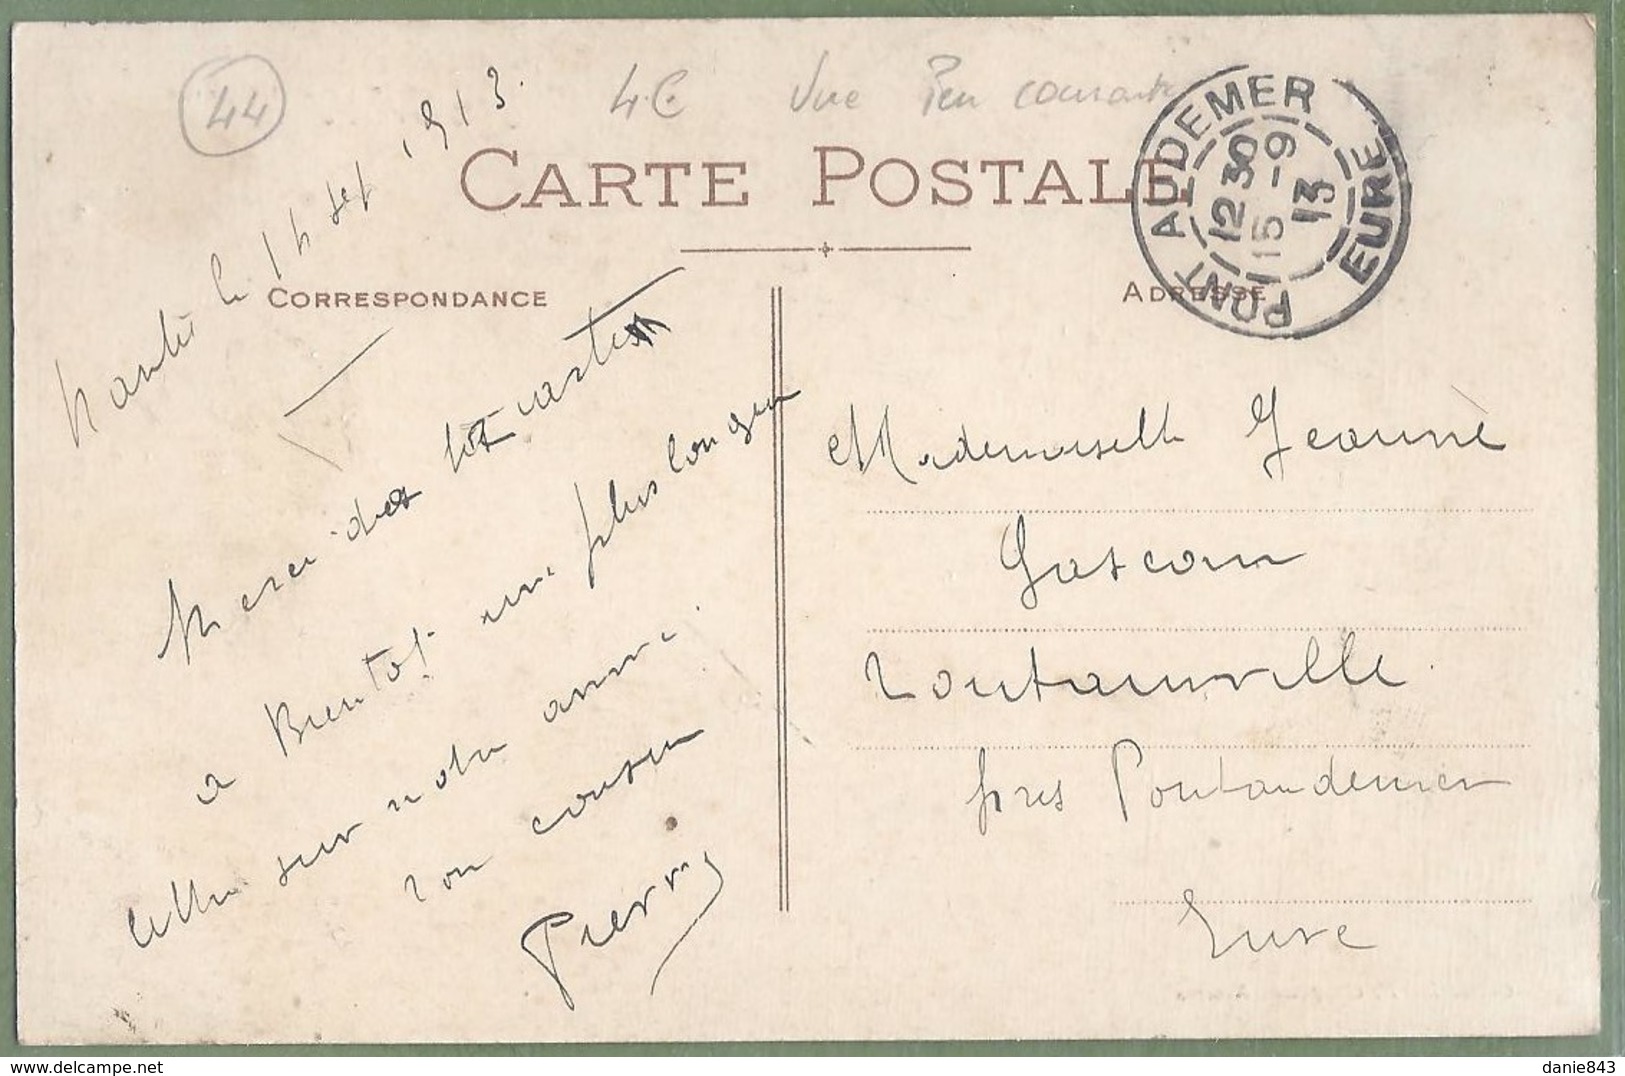 44
4 € Vue Peu courante
Nantes le 14 sept 1913.
CARTE POSTALE
CORRESPONDANCE
ADRESSE
PONT AUDEMER
12 30
15 - 9
13
EURE
Merci des tes cartes
a Bientot une plus longue
lettre sur notre année
ton cousin
Pierre
Mademoiselle Jeanne
Gascoin
Toutainville
près Pontaudemer
Eure
delcampe.net
danie843